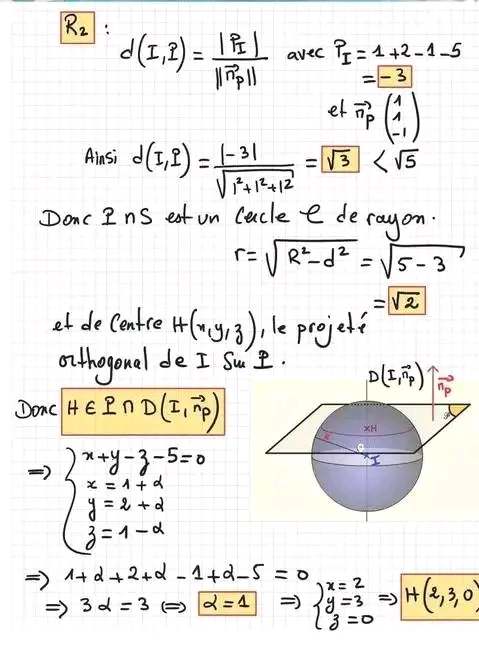 R₂ :
d(I,P) = |P_I| / ||n⃗_p|| avec P_I = 1+2-1-5
= -3
et n⃗_p (1 1 -1)
Ainsi d(I,P) = |-3| / √(1²+1²+1²) = √3 < √5
Donc P∩S est un Cercle C de rayon.
r = √(R²-d²) = √(5-3)
= √2
et de Centre H(x,y,z), le projeté
orthogonal de I sur P.
D(I,n⃗_p)
n⃗_p
Donc H ∈ P∩D(I,n⃗_p)
P
xH
I
⇒ { x+y-z-5=0
x = 1+α
y = 2+α
z = 1-α
⇒ 1+α+2+α-1+α-5 = 0
⇒ 3α = 3 ⇔ α=1 ⇒ { x=2 y=3 z=0 ⇒ H(2,3,0)